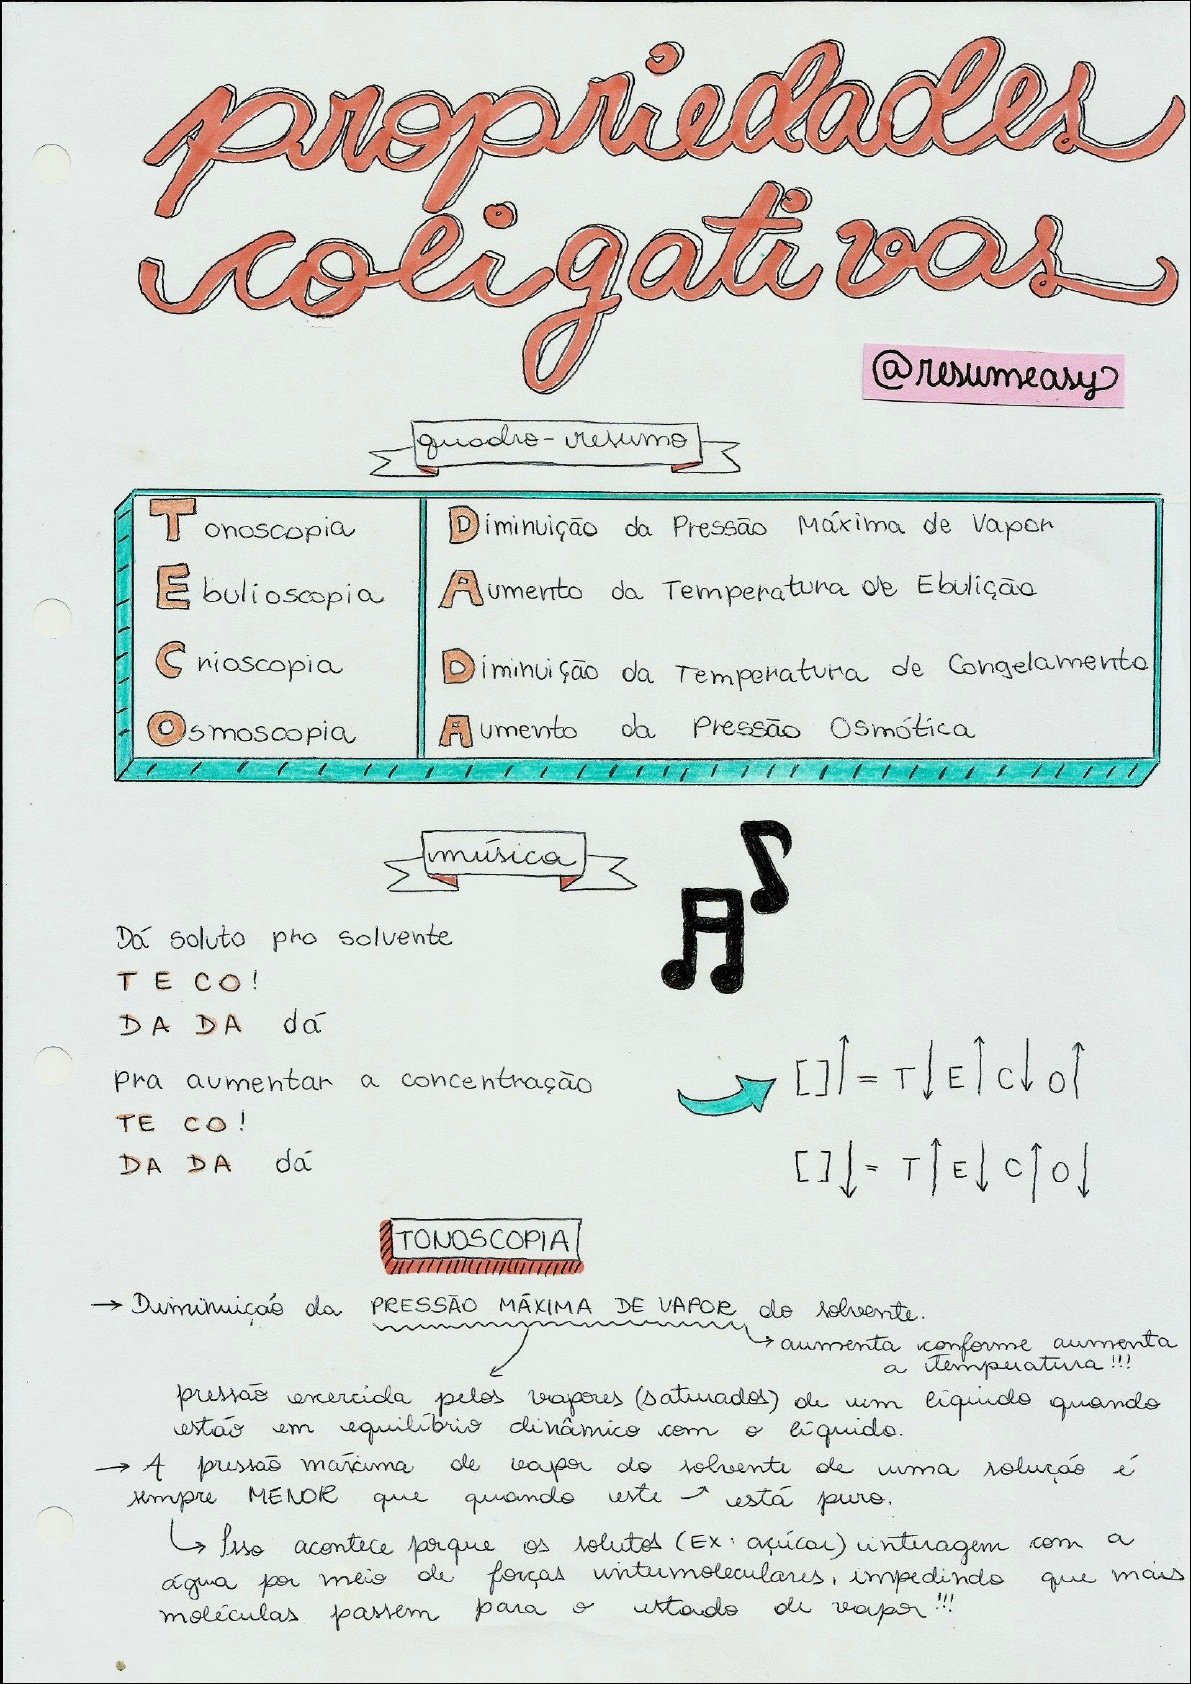 propriedades
coligativas
@resumeasy
quadro-resumo
Tonoscopia Diminuição da Pressão Máxima de Vapor
Ebulioscopia Aumento da Temperatura de Ebulição
Crioscopia Diminuição da Temperatura de Congelamento
Osmoscopia Aumento da Pressão Osmótica
música
Dá soluto pro solvente
T E CO!
DA DA dá
pra aumentar a concentração
TE CO!
DA DA dá
[]↑ = T↓ E↑ C↓ O↑
[]↓ = T↑ E↓ C↑ O↓
TONOSCOPIA
→ Diminuição da PRESSÃO MÁXIMA DE VAPOR do solvente.
↳ aumenta conforme aumenta
a temperatura!!!
pressão exercida pelos vapores (saturados) de um líquido quando
estão em equilíbrio dinâmico com o líquido.
→ A pressão máxima de vapor do solvente de uma solução é
sempre MENOR que quando este → está puro.
↳ Isso acontece porque os solutos (Ex: açúcar) interagem com a
água por meio de forças intermoleculares, impedindo que mais
moléculas passem para o estado de vapor!!!